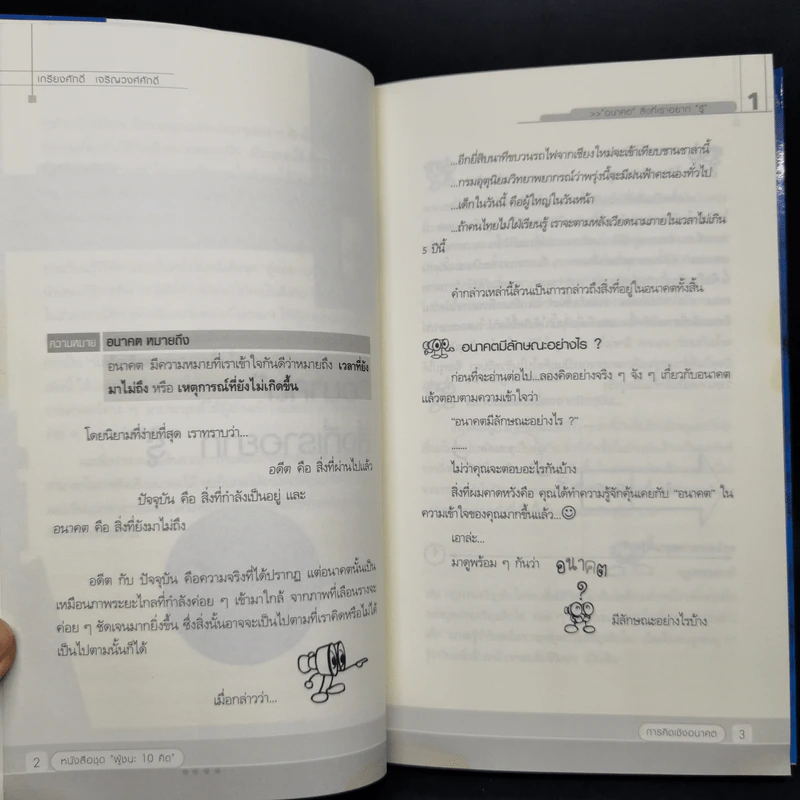 เกรียงศักดิ์ เจริญวงศ์ศักดิ์
ความหมาย อนาคต หมายถึง
อนาคต มีความหมายที่เราเข้าใจกันดีว่าหมายถึง เวลาที่ยัง
มาไม่ถึง หรือ เหตุการณ์ที่ยังไม่เกิดขึ้น
โดยนิยามที่ง่ายที่สุด เราทราบว่า...
อดีต คือ สิ่งที่ผ่านไปแล้ว
ปัจจุบัน คือ สิ่งที่กำลังเป็นอยู่ และ
อนาคต คือ สิ่งที่ยังมาไม่ถึง
อดีต กับ ปัจจุบัน คือความจริงที่ได้ปรากฏ แต่อนาคตนั้นเป็น
เหมือนภาพระยะไกลที่กำลังค่อย ๆ เข้ามาใกล้ จากภาพที่เลือนรางจะ
ค่อย ๆ ชัดเจนมากยิ่งขึ้น ซึ่งสิ่งนั้นอาจจะเป็นไปตามที่เราคิดหรือไม่ได้
เป็นไปตามนั้นก็ได้
เมื่อกล่าวว่า...
2 หนังสือชุด "ผู้ชนะ 10 คิด"
>>"อนาคต" สิ่งที่เราอยาก "รู้" 1
...อีกยี่สิบนาทีขบวนรถไฟจากเชียงใหม่จะเข้าเทียบชานชาลานี้
...กรมอุตุนิยมวิทยาพยากรณ์ว่าพรุ่งนี้จะมีฝนฟ้าคะนองทั่วไป
...เด็กในวันนี้ คือผู้ใหญ่ในวันหน้า
...ถ้าคนไทยไม่ใฝ่เรียนรู้ เราจะตามหลังเวียดนามภายในเวลาไม่เกิน
5 ปีนี้
คำกล่าวเหล่านี้ล้วนเป็นการกล่าวถึงสิ่งที่อยู่ในอนาคตทั้งสิ้น
อนาคตมีลักษณะอย่างไร ?
ก่อนที่จะอ่านต่อไป...ลองคิดอย่างจริง ๆ จัง ๆ เกี่ยวกับอนาคต
แล้วตอบตามความเข้าใจว่า
"อนาคตมีลักษณะอย่างไร ?"
.......
ไม่ว่าคุณจะตอบอะไรกันบ้าง
สิ่งที่ผมคาดหวังคือ คุณได้ทำความรู้จักคุ้นเคยกับ "อนาคต" ใน
ความเข้าใจของคุณมากขึ้นแล้ว...☺
เอาล่ะ...
มาดูพร้อม ๆ กันว่า อนาคต
?
มีลักษณะอย่างไรบ้าง
การคิดเชิงอนาคต 3